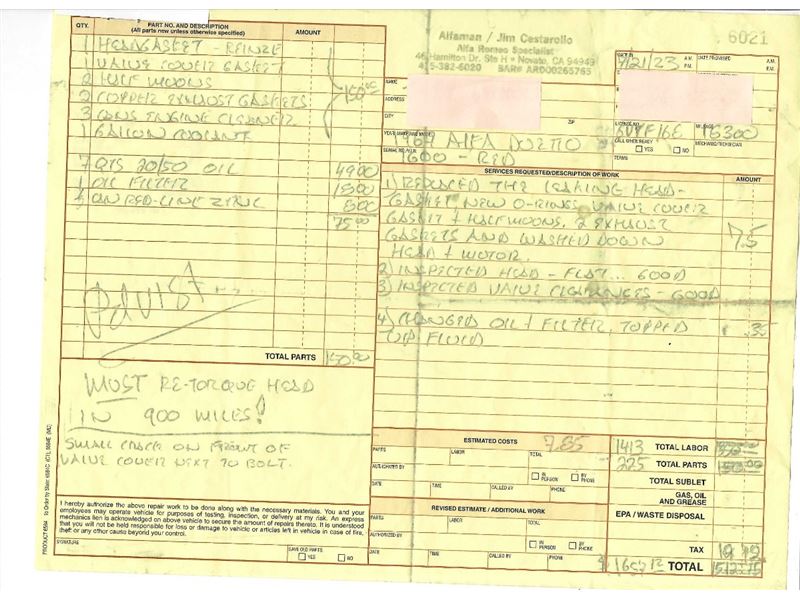 QTY. PART NO. AND DESCRIPTION AMOUNT
(All parts new unless otherwise specified)
1 HEADGASKET - REINZE
1 VALVE COVER GASKET
2 HALF MOONS
2 COPPER EXHAUST GASKETS
3 CANS ENGINE CLEANER
1 GALLON COOLANT
150.00
7 QTS 20/50 OIL 49.00
1 OIL FILTER 15.00
CAN RED-LINE ZINC
75.00
TOTAL PARTS 150.00
MUST RE-TORQUE HEAD
IN 900 MILES!
SMALL CRACK ON FRONT OF
VALVE COVER NEXT TO BOLT.
I hereby authorize the above repair work to be done along with the necessary materials. You and your
employees may operate vehicle for purposes of testing, inspection, or delivery at my risk. An express
mechanics lien is acknowledged on above vehicle to secure the amount of repairs thereto. It is understood
that you will not be held responsible for loss or damage to vehicle or articles left in vehicle in case of fire,
theft or any other cause beyond your control.
SIGNATURE
SAVE OLD PARTS
YES NO
Alfaman / Jim Cestarollo
Alfa Romeo Specialist
Hamilton Dr. Ste H • Novato, CA 94949
415-382-6020 BAR# ARD00265765
6021
7/21/23 A.M. P.M. DATE PROMISED A.M. P.M.
NAME
ADDRESS
CITY ZIP
LICENSE NO. MILEAGE
CALL WHEN READY
YES NO
TERMS
YEAR MAKE AND MODEL
1967 ALFA DUETTO
SERIAL NO.
1600 - RED
SERVICES REQUESTED/DESCRIPTION OF WORK AMOUNT
1) REPLACED THE LEAKING HEAD-
GASKET NEW O-RINGS, VALVE COVER
GASKET + HALF MOONS, 2 EXHAUST
GASKETS AND WASHED DOWN 7.5
HEAD + MOTOR.
2) INSPECTED HEAD - FLAT... GOOD
3) INSPECTED VALVE CLEARANCES - GOOD
4) CHANGED OIL + FILTER, TOPPED .35
UP FLUID
ESTIMATED COSTS 7.85
PARTS LABOR TOTAL
AUTHORIZED BY IN PERSON BY PHONE
DATE TIME CALLED BY PHONE
REVISED ESTIMATE / ADDITIONAL WORK
PARTS LABOR TOTAL
AUTHORIZED BY IN PERSON BY PHONE
DATE TIME CALLED BY PHONE
1413 TOTAL LABOR
225 TOTAL PARTS
TOTAL SUBLET
GAS, OIL
AND GREASE
EPA / WASTE DISPOSAL
TAX
TOTAL